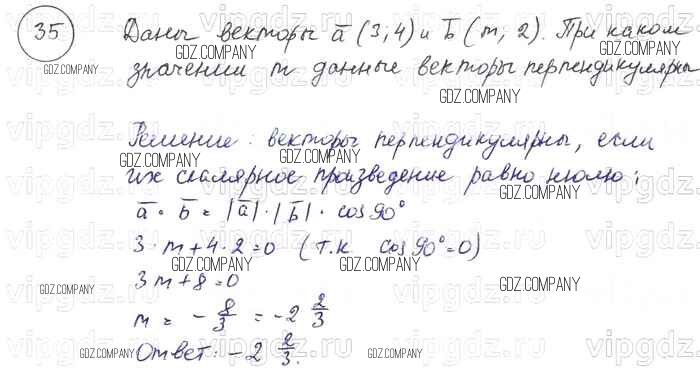 35 Даны векторы a̅ (3; 4) и b̅ (m; 2). При каком
значении m данные векторы перпендикулярны
Решение: векторы перпендикулярны, если
их скалярное произведение равно нулю;
a̅ · b̅ = |a̅| · |b̅| · cos 90°
3 · m + 4 · 2 = 0 (т.к cos 90° = 0)
3m + 8 = 0
m = - 8/3 = -2 2/3
Ответ: -2 2/3.
GDZ.COMPANY
GDZ.COMPANY
GDZ.COMPANY
GDZ.COMPANY
GDZ.COMPANY
GDZ.COMPANY
GDZ.COMPANY
GDZ.COMPANY
GDZ.COMPANY
GDZ.COMPANY
GDZ.COMPANY
GDZ.COMPANY
GDZ.COMPANY
GDZ.COMPANY
vipgdz.ru